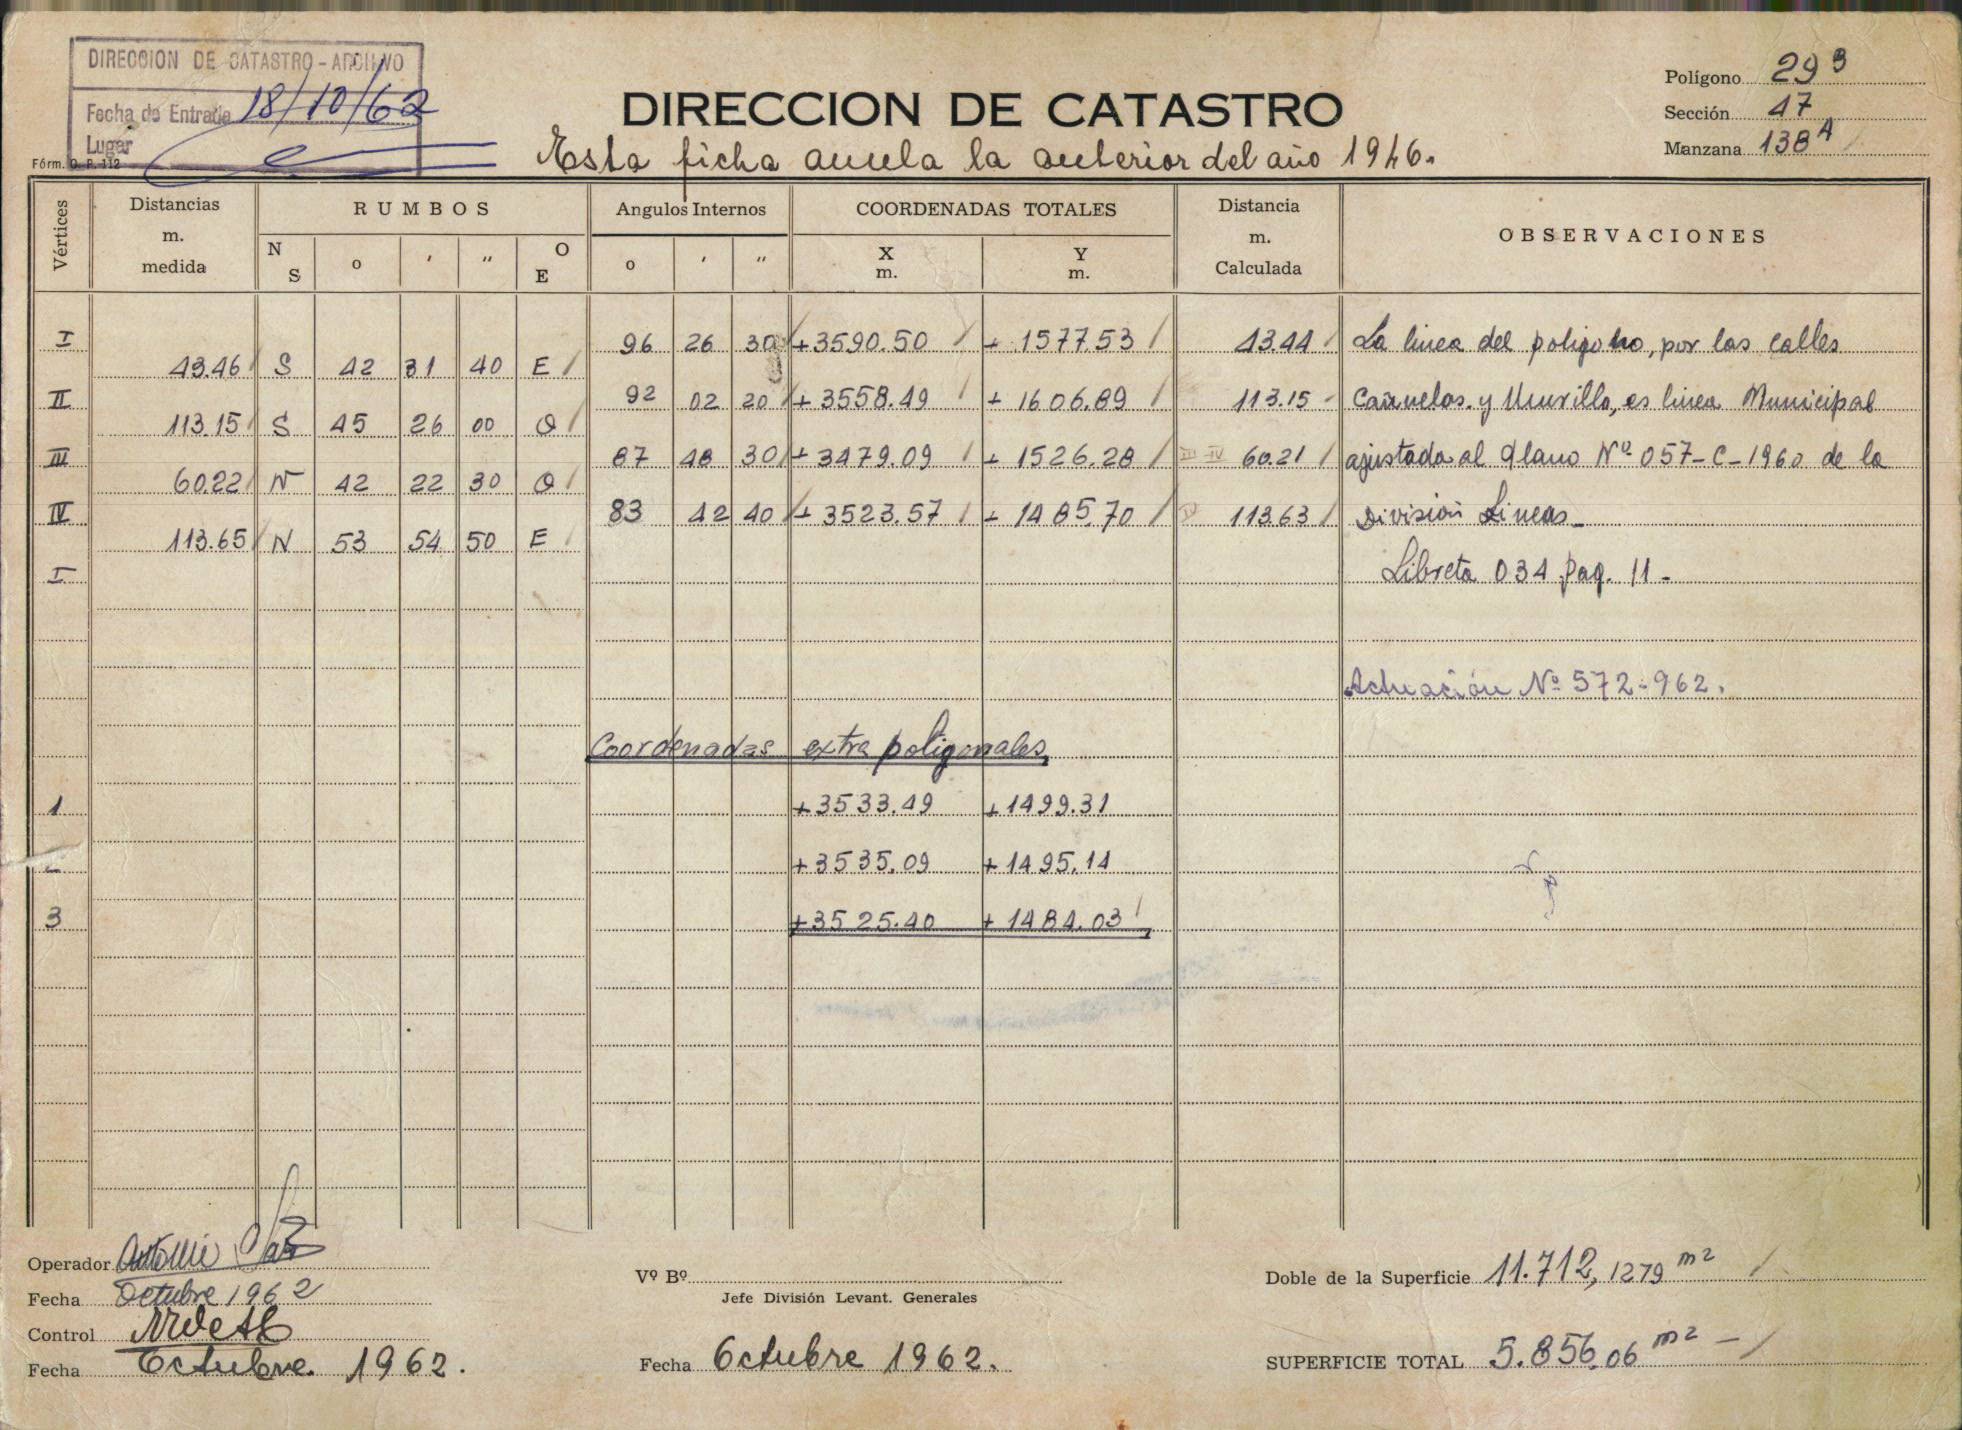 DIRECCION DE CATASTRO - ARCHIVO
Fecha de Entrada 18/10/62
Lugar
Fórm. O. P. 112
DIRECCION DE CATASTRO
Esta ficha anula la anterior del año 1946.
Polígono 29 B
Sección 47
Manzana 138 A
Vértices Distancias m. medida RUMBOS Angulos Internos COORDENADAS TOTALES Distancia m. Calculada OBSERVACIONES
N S o ' " O E o ' " X m. Y m.
I 96 26 30 +3590.50 + 1577.53 43.44 La linea del poligono, por las calles
43.46 S 42 31 40 E
II 92 02 20 + 3558.49 + 1606.89 113.15 Cañuelas y Murillo, es linea Municipal
113.15 S 45 26 00 O
III 87 48 30 + 3479.09 + 1526.28 III IV 60.21 ajustada al Plano Nº 057-C-1960 de la
60.22 N 42 22 30 O
IV 83 42 40 + 3523.57 + 1485.70 113.63 División Lineas_
113.65 N 53 54 50 E
I Libreta 034 pag. 11-
Actuación Nº 572-962.
Coordenadas extra poligonales
1 +3533.49 +1499.31
+3535.09 +1495.14
3 +3525.40 + 1484.03
Operador
Fecha Octubre 1962
Control
Fecha Octubre 1962.
Vº Bº
Jefe División Levant. Generales
Fecha Octubre 1962.
Doble de la Superficie 11.712,1279 m2
SUPERFICIE TOTAL 5.856.06 m2 -